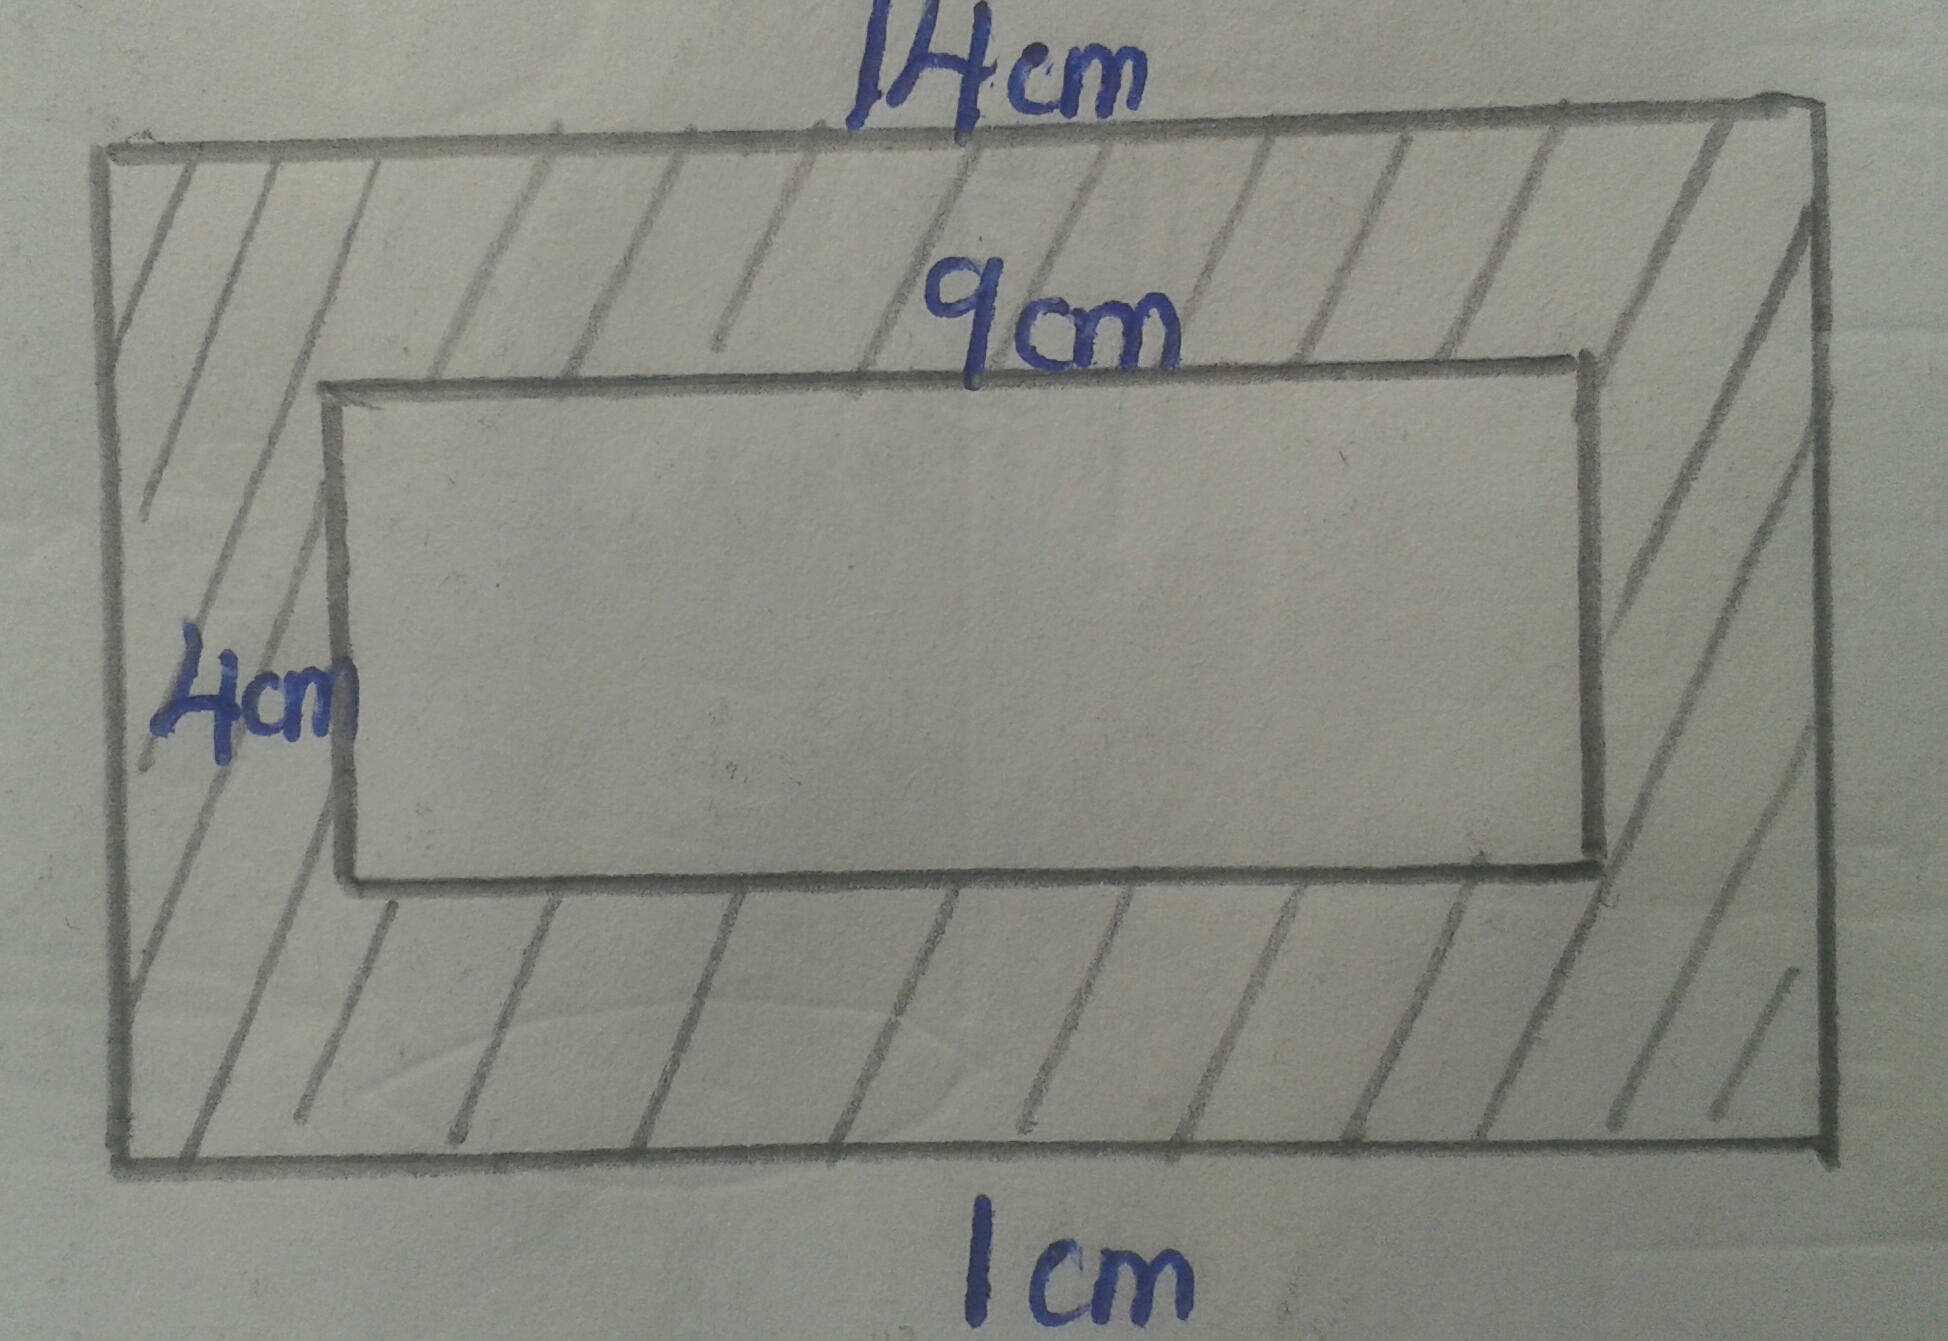 14cm
9cm
4cm
1cm